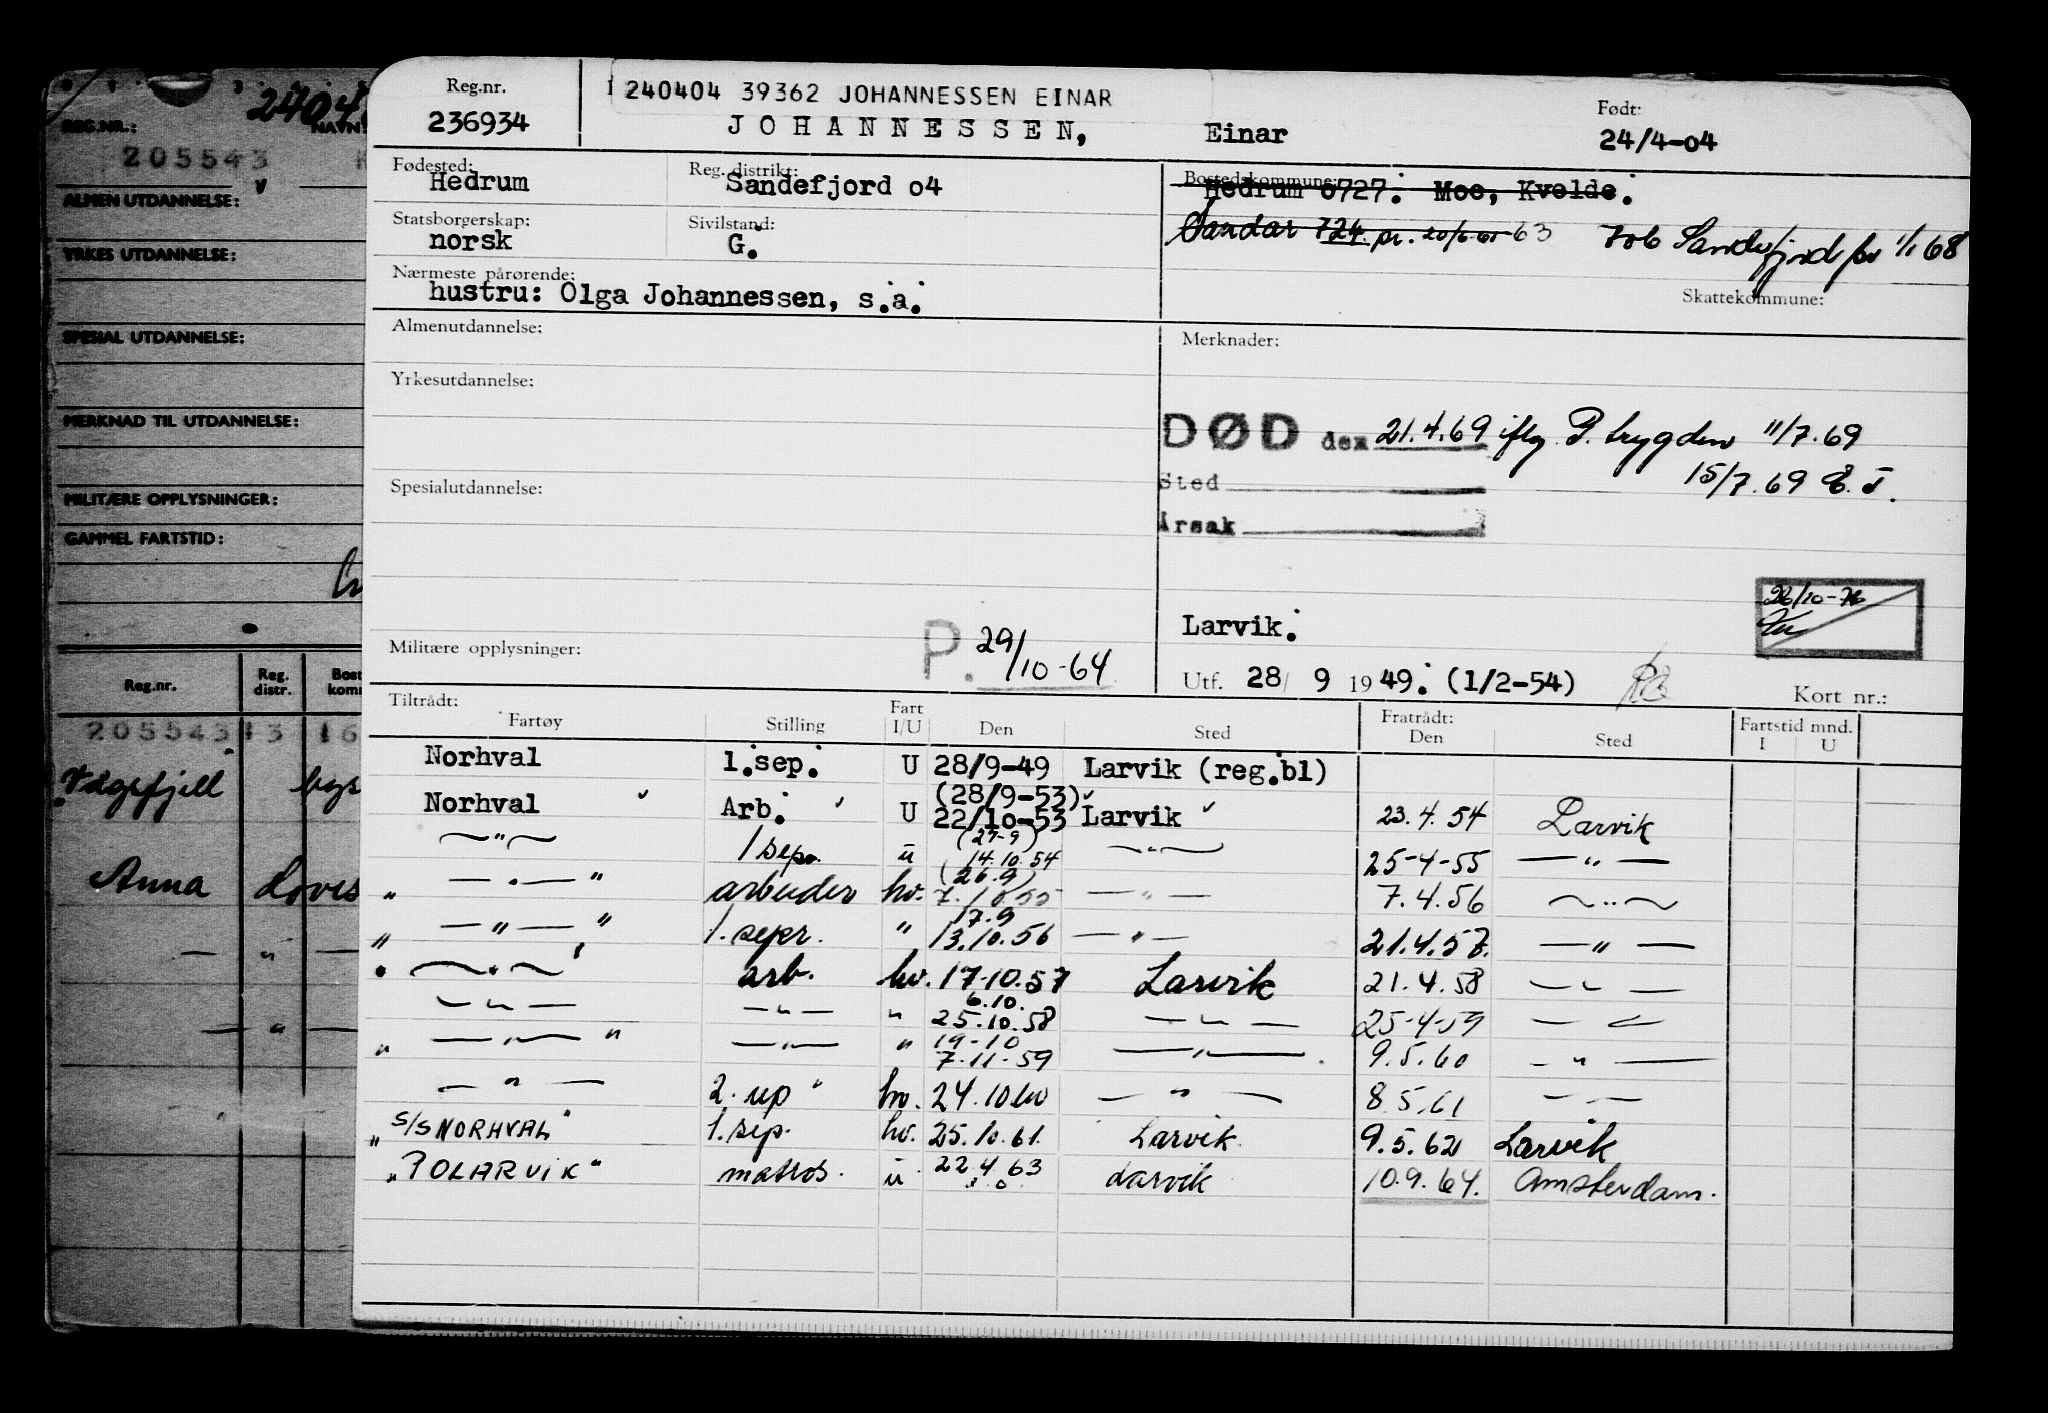 2404
REG.NR.:
NAVN:
205543
ALMEN UTDANNELSE:
YRKES UTDANNELSE:
SPESIAL UTDANNELSE:
MERKNAD TIL UTDANNELSE:
MILITÆRE OPPLYSNINGER:
GAMMEL FARTSTID:
Reg.nr.
Reg. distr.
Bost komm
205543 13 16
Anna
Reg.nr.
236934
240404 39362 JOHANNESSEN EINAR
JOHANNESSEN, Einar
Født:
24/4-04
Fødested:
Hedrum
Reg. distrikt:
Sandefjord 04
Bostedskommune:
Hedrum 0727. Moe, Kvelde.
Sandar 724 pr. 20/6 63
706 Sandefjord pr 1/1 68
Statsborgerskap:
norsk
Sivilstand:
G.
Nærmeste pårørende:
hustru: Olga Johannessen, s.a.
Skattekommune:
Almenutdannelse:
Merknader:
Yrkesutdannelse:
DØD den 21.4.69 iflg P. trygden 11/7.69
15/7.69
Sted
Årsak
Spesialutdannelse:
Militære opplysninger:
P. 29/10-64
Larvik.
Utf. 28/ 9 1949. (1/2-54)
Kort nr.:
Tiltrådt:
Fartøy Stilling Fart I/U Den Sted
Fratrådt:
Den Sted
Fartstid mnd.
I U
Norhval 1.sep. U 28/9-49 Larvik (reg.bl)
(28/9-53)
Norhval Arb. U 22/10-53 Larvik 23.4.54 Larvik
(27-9)
—"— 1 sepr. u 14.10.54 —"— 25-4-55 —"—
(26.9)
" —"— " arbeider hv. 7.10.55 —"— 7.4.56 —"—
17.9
" —"— " 1. sepr. " 13.10.56 —"— 21.4.57. —"—
" —"— " arb. hv. 17-10.57 Larvik 21.4.58 —"—
6.10.
—"— —"— " 25.10.58 —"— 25-4-59 —"—
19-10
" —"— " —"— " 7.11-59 —"— 9.5.60 —"—
—"— 2. up hv. 24.10.60 —"— 8.5.61 —"—
" S/S NORHVAL" 1. sep. hv. 25.10.61. Larvik. 9.5.62 Larvik
"POLARVIK" matros. u 22.4.63 Larvik 10.9.64. Amsterdam.